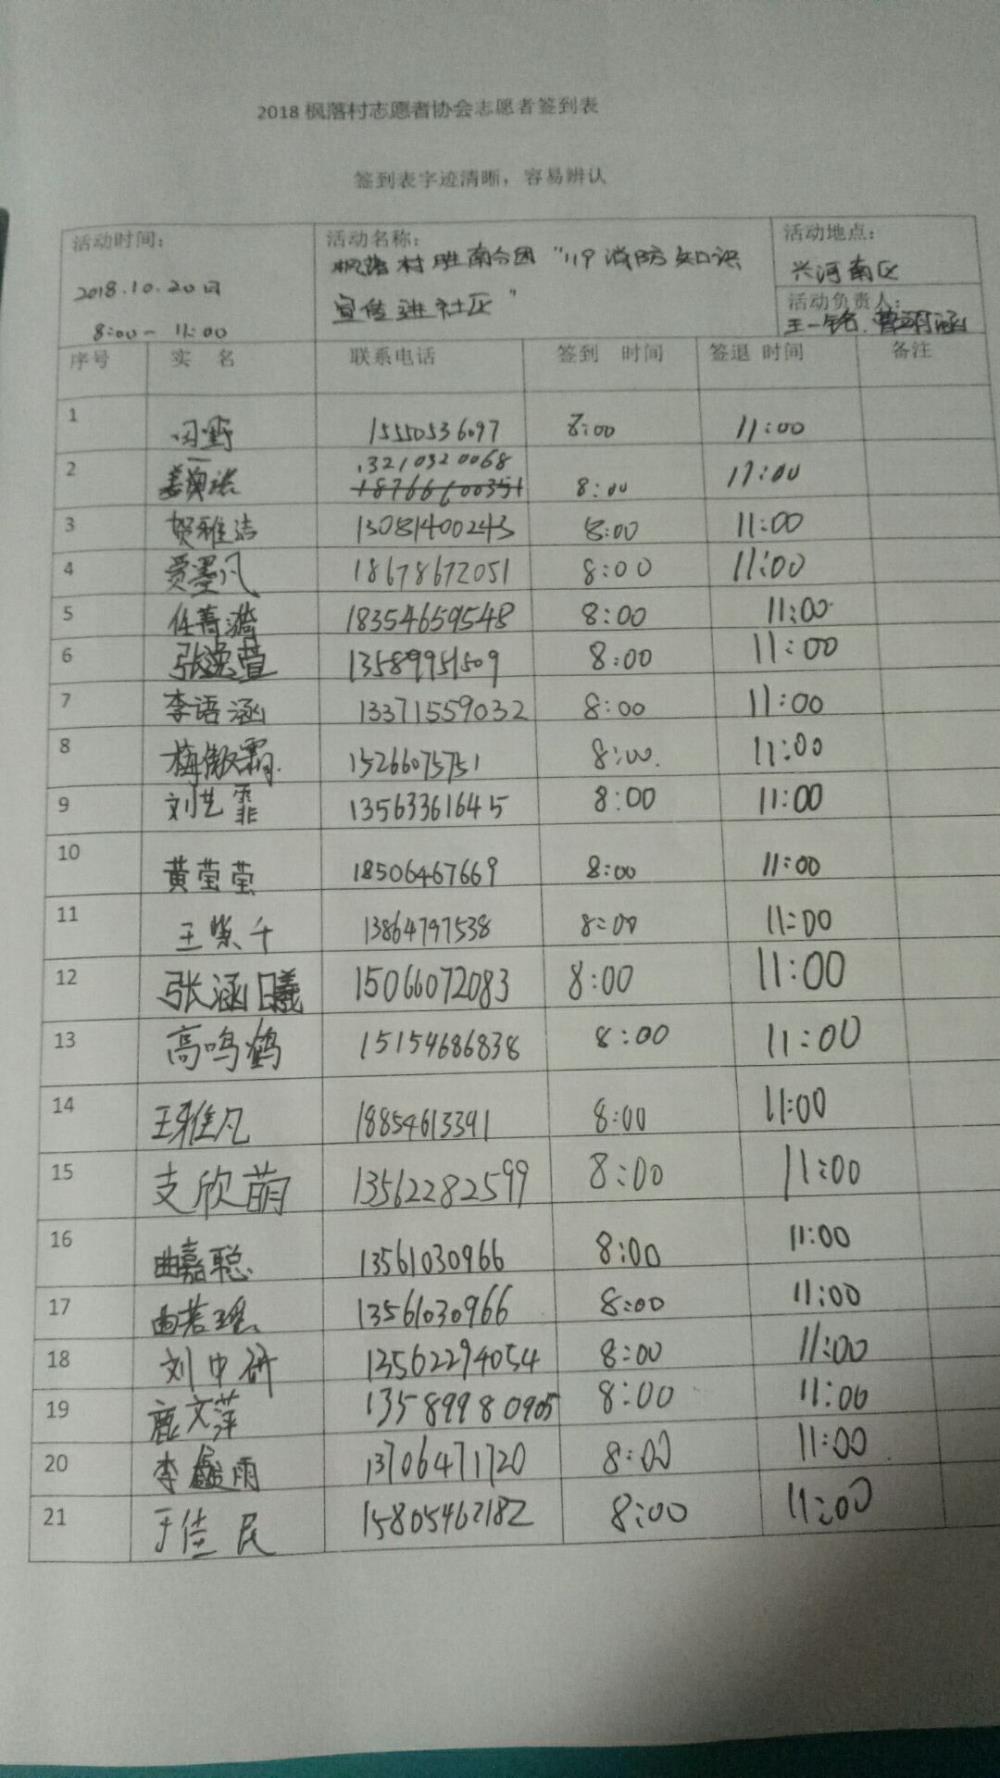 2018枫落村志愿者协会志愿者签到表
签到表字迹清晰，容易辨认
活动时间：
2018.10.20日
8:00— 11:00
活动名称：
枫落村胜南分团“119消防知识
宣传进社区”
活动地点：
兴河南区
活动负责人：
王一铭、涵
序号 实 名 联系电话 签到 时间 签退 时间 备注
1 闵野 15550536097 8:00 11:00
2 13210320068 8:00 11:00
18766600351
3 贺雅洁 13081400243 8:00 11:00
4 贾墨凡 18678672051 8:00 11:00
5 任菁漪 18354659548 8:00 11:00
6 张逸萱 13589951509 8:00 11:00
7 李语涵 13371559032 8:00 11:00
8 梅傲霜 15266075751 8:00 11:00
9 刘艺霏 13563361645 8:00 11:00
10 黄莹莹 18506467669 8:00 11:00
11 王紫千 13864797538 8:00 11:00
12 张涵曦 15066072083 8:00 11:00
13 高鸣鹤 15154686838 8:00 11:00
14 王雅凡 18854613391 8:00 11:00
15 支欣萌 13562282599 8:00 11:00
16 曲嘉聪 13561030966 8:00 11:00
17 曲若瑶 13561030966 8:00 11:00
18 刘中研 13562294054 8:00 11:00
19 鹿文萍 13589980905 8:00 11:00
20 李雨 13706471720 8:00 11:00
21 于佳民 15805462182 8:00 11:00